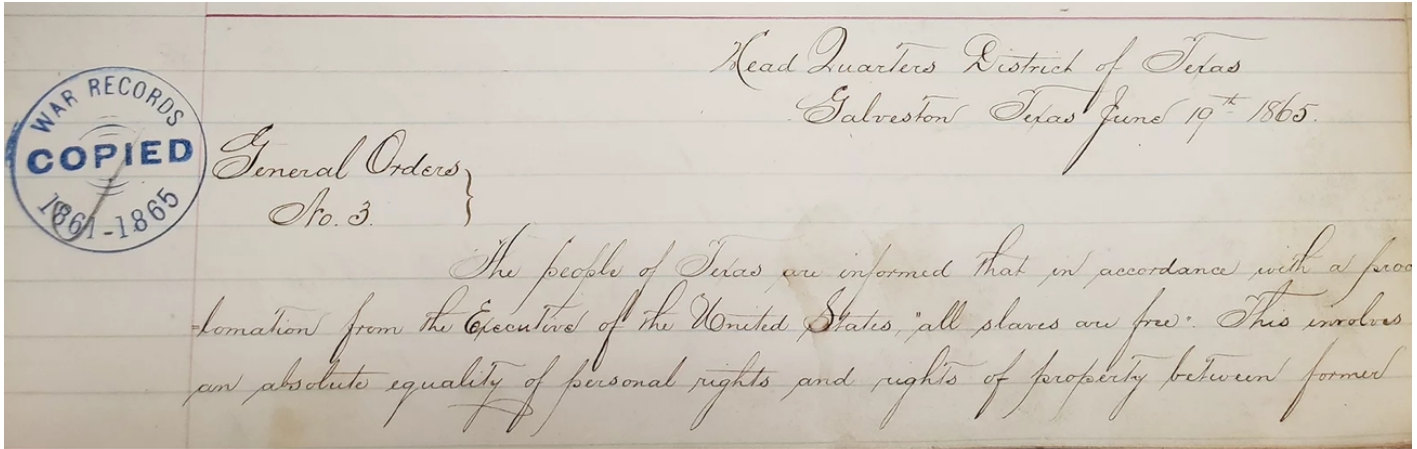 Head Quarters District of Texas
Galveston Texas June 19th 1865.
WAR RECORDS
COPIED
1861-1865
General Orders
No. 3.
The people of Texas are informed that in accordance with a proc
=lamation from the Executive of the United States, "all slaves are free". This involves
an absolute equality of personal rights and rights of property between former